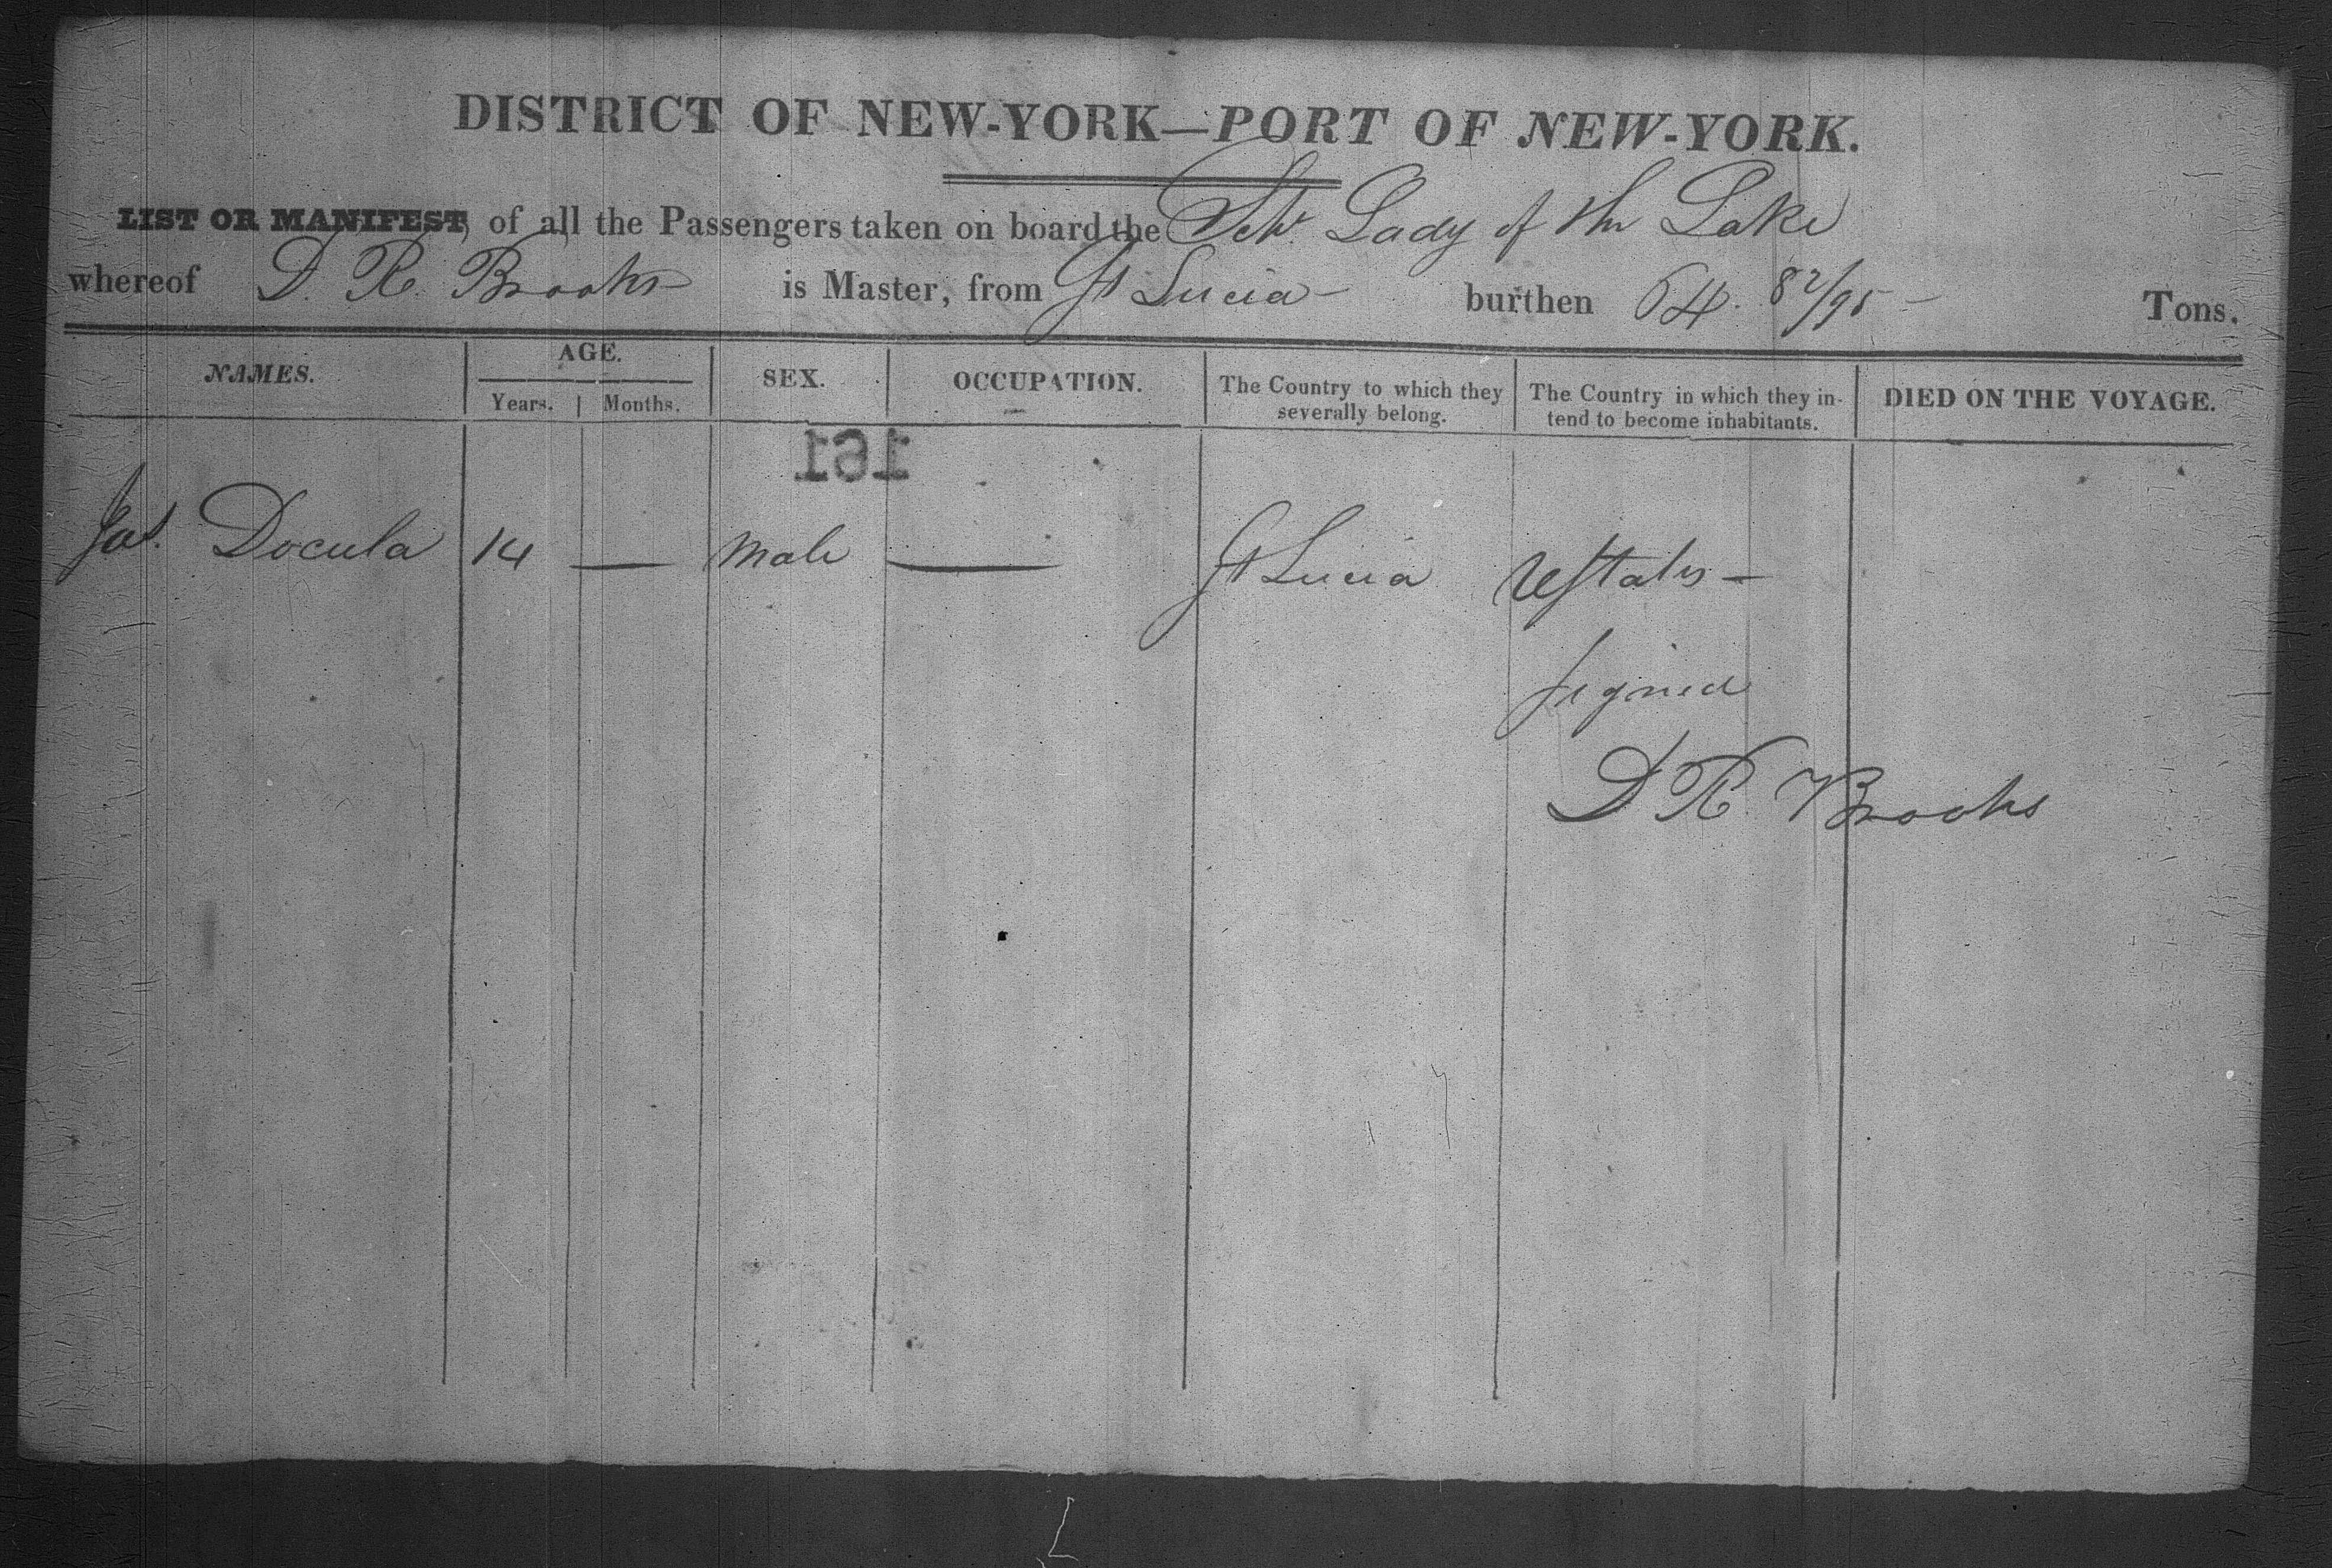 DISTRICT OF NEW-YORK—PORT OF NEW-YORK.
LIST OR MANIFEST, of all the Passengers taken on board the Schr. Lady of the Lake
whereof D. R. Brooks is Master, from St Lucia - burthen 64. 82/95 - Tons.
NAMES. AGE. SEX. OCCUPATION. The Country to which they severally belong. The Country in which they in-tend to become inhabitants. DIED ON THE VOYAGE.
Years. Months.
161
Jas. Docula 14 — Male — St Lucia UStates -
Signed
D R Brooks